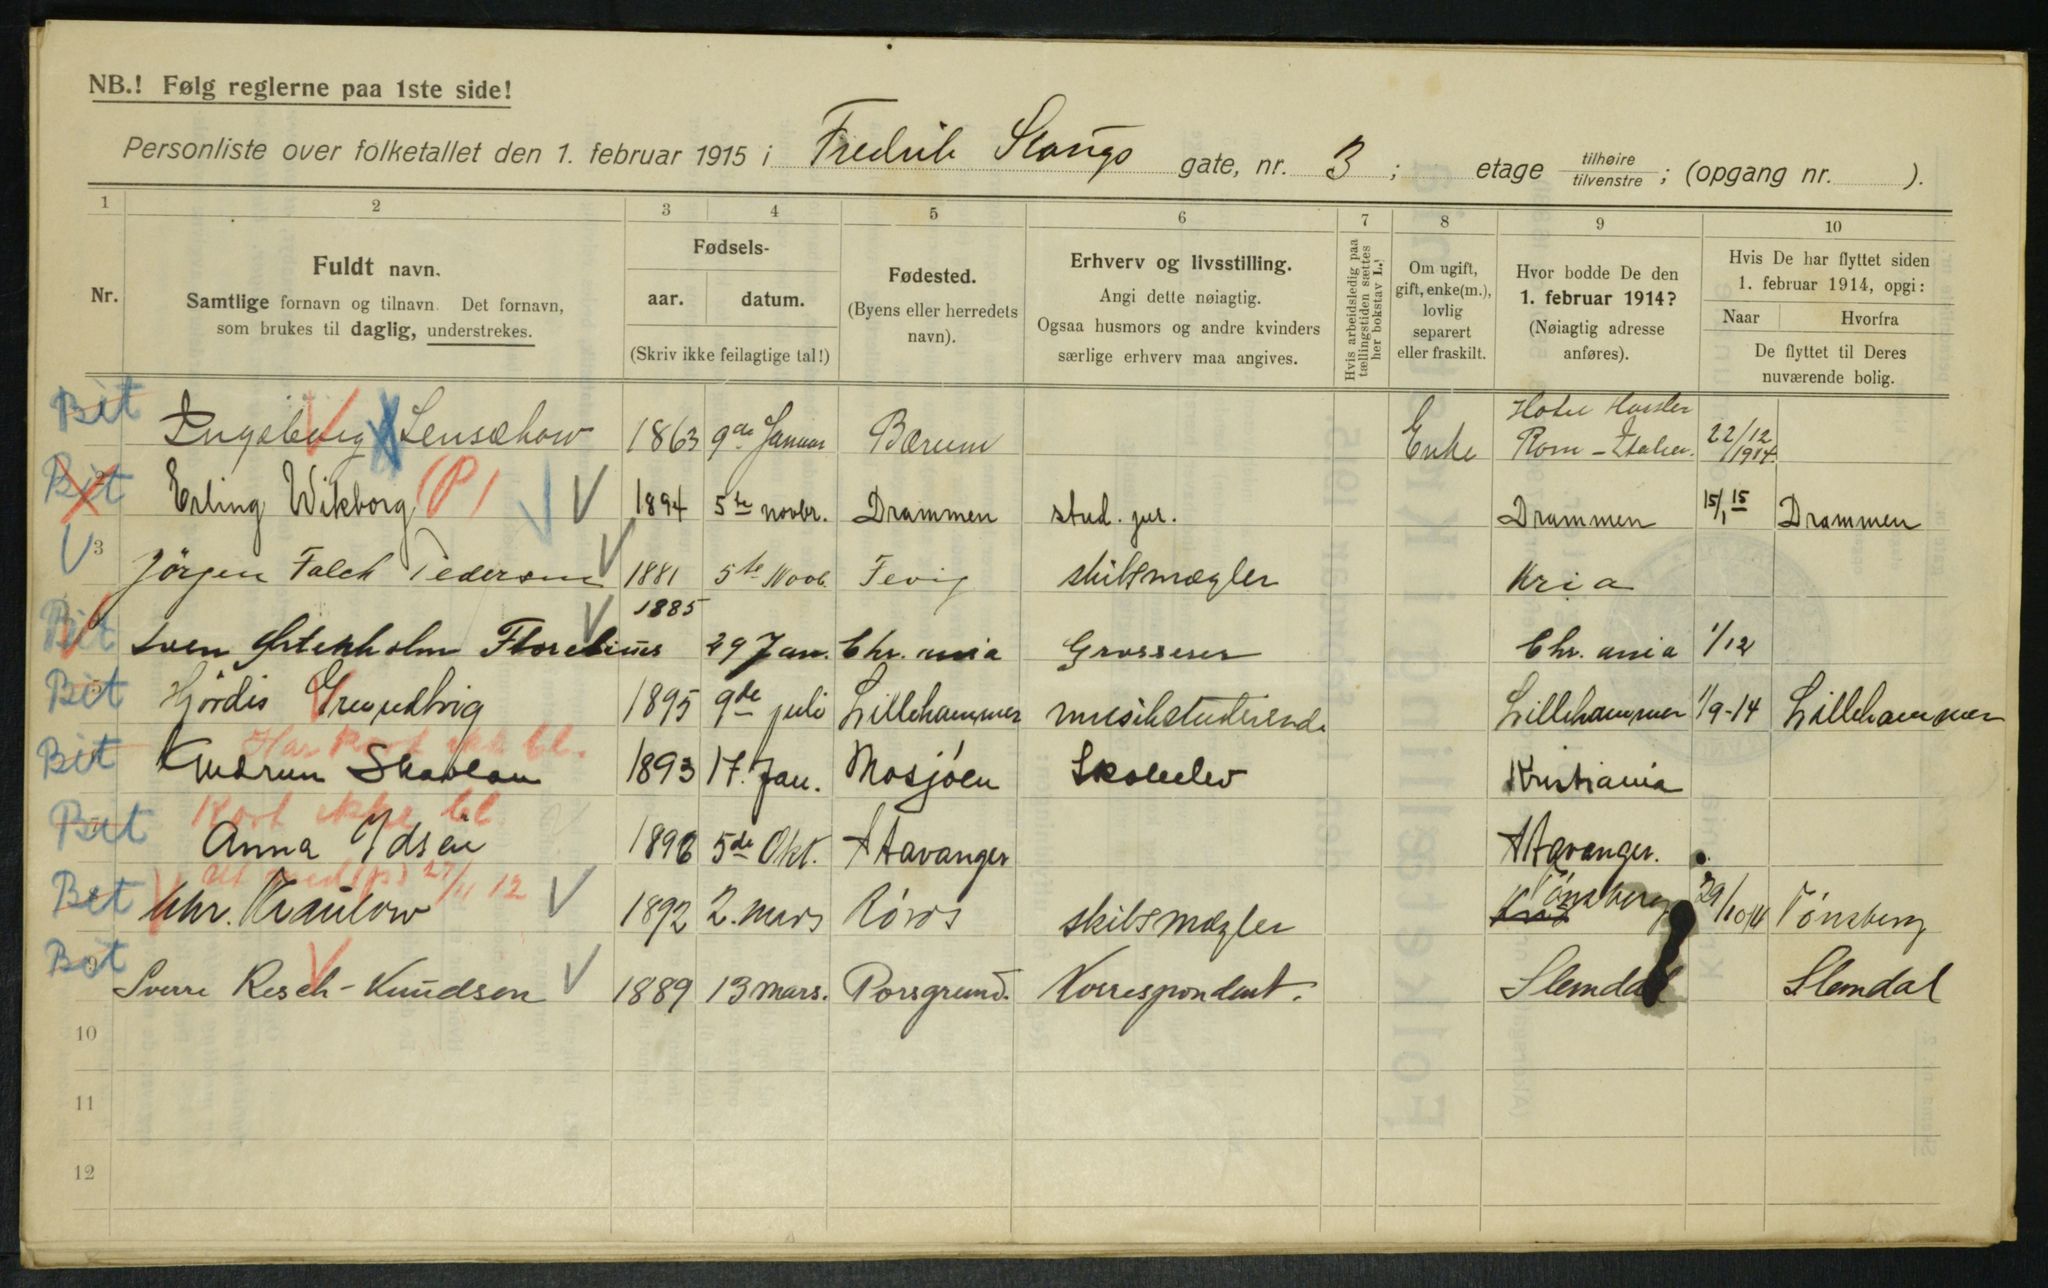 NB.! Følg reglerne paa 1ste side!
Personliste over folketallet den 1. februar 1915 i Fredrik Stangs gate, nr. 3 ; etage tilhøire tilvenstre ; (opgang nr. ).
1 2 3 4 5 6 7 8 9 10
Nr.
Fuldt navn.
Samtlige fornavn og tilnavn. Det fornavn,
som brukes til daglig, understrekes.
Fødsels-
aar. datum.
(Skriv ikke feilagtige tal!)
Fødested.
(Byens eller herredets
navn).
Erhverv og livsstilling.
Angi dette nøiagtig.
Ogsaa husmors og andre kvinders
særlige erhverv maa angives.
Hvis arbeidsledig paa
tællingstiden sættes
her bokstav L.!
Om ugift,
gift, enke(m.),
lovlig
separert
eller fraskilt.
Hvor bodde De den
1. februar 1914?
(Nøiagtig adresse
anføres).
Hvis De har flyttet siden
1. februar 1914, opgi:
Naar Hvorfra
De flyttet til Deres
nuværende bolig.
Bet Ingeborg 1863 9de Januar Bærum Enke Hotel Hassler Rom - Italien. 22/12 1914
Bet 2 Erling Wikborg (P) 1894 5te novbr. Drammen stud. jur. Drammen 15/1 15 Drammen
3 Jörgen Falck Pedersen 1881 5te Novb. Fevig skibsmægler Kria
Bet Sven Ørtenholm 1885 29 Jan. Chr. ania Grosserer Chr. ania 1/12
Bet Hjördis Grundtvig 1895 9de juli Lillehammer musikstuderende Lillehammer 1/9-14 Lillehammer
Har kort ikke bl.
Bet Gudrun Skavlan 1893 17. Jan. Mosjøen Skoleelev Kristiania
Kort ikke bl.
Bet Anna Idsöe 1896 5de Okt. Stavanger Stavanger.
27/11 12
Bet Chr. Kraulow 1892 2. mars Röros skibsmægler Tönsberg 29/10 14 Tönsberg
Bet Sverre Resch-Knudsen 1889 13 mars. Porsgrund. Korrespondent. Slemdal Slemdal
10
11
12